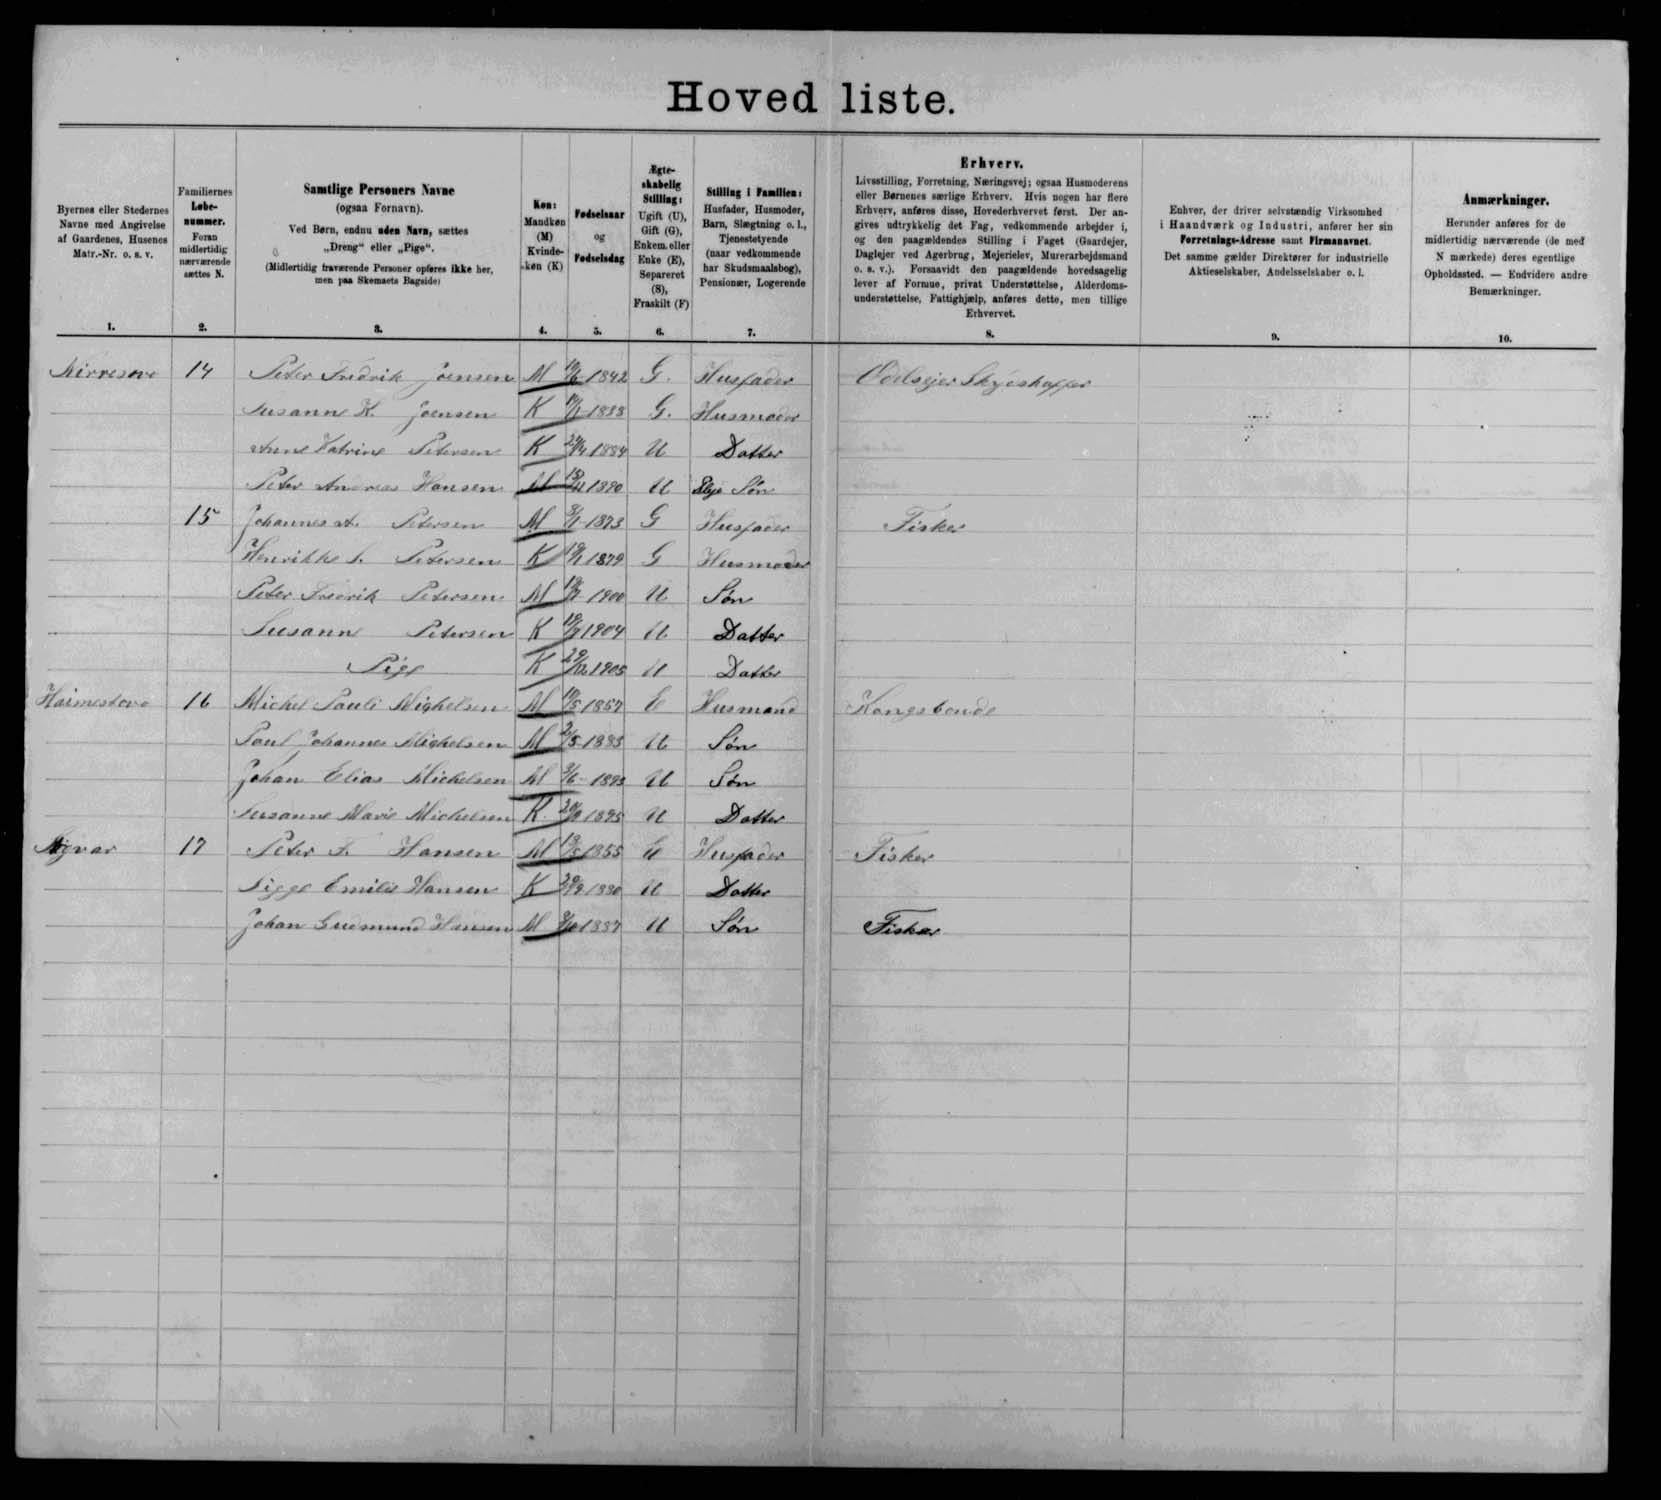 Hoved liste.
Byernes eller Stedernes Navne med Angivelse af Gaardenes, Husenes Matr.-Nr. o. s. v.
Familiernes Løbenummer. Foran midlertidig nærværende sættes N.
Samtlige Personers Navne (ogsaa Fornavn). Ved Børn, endnu uden Navn, sættes „Dreng“ eller „Pige“. (Midlertidig fraværende Personer opføres ikke her, men paa Skemaets Bagside)
Køn: Mandkøn (M) Kvindekøn (K)
Fødselsaar og Fødselsdag
Ægteskabelig Stilling: Ugift (U), Gift (G), Enkem. eller Enke (E), Separeret (S), Fraskilt (F)
Stilling i Familien: Husfader, Husmoder, Barn, Slægtning o. l., Tjenestetyende (naar vedkommende har Skudsmaalsbog), Pensionær, Logerende
Erhverv. Livsstilling, Forretning, Næringsvej; ogsaa Husmoderens eller Børnenes særlige Erhverv. Hvis nogen har flere Erhverv, anføres disse, Hovederhvervet først. Der angives udtrykkelig det Fag, vedkommende arbejder i, og den paagældendes Stilling i Faget (Gaardejer, Daglejer ved Agerbrug, Mejerielev, Murerarbejdsmand o. s. v.). Forsaavidt den paagældende hovedsagelig lever af Formue, privat Understøttelse, Alderdomsunderstøttelse, Fattighjælp, anføres dette, men tillige Erhvervet.
Enhver, der driver selvstændig Virksomhed i Haandværk og Industri, anfører her sin Forretnings-Adresse samt Firmanavnet. Det samme gælder Direktører for industrielle Aktieselskaber, Andelsselskaber o. l.
Anmærkninger. Herunder anføres for de midlertidig nærværende (de med N mærkede) deres egentlige Opholdssted. — Endvidere andre Bemærkninger.
1. 2. 3. 4. 5. 6. 7. 8. 9. 10.
14 Peter Fredrik Joensen M 1842 G. Husfader
Susanne K. Joensen K G. Husmoder
Anne Katrine Petersen K 1884 U Datter
Peter Andreas Hansen M 1890 U Pleje Søn
15 Johannes A. Petersen M 1873 G Husfader Fisker
Henrikke S. Petersen K 1879 G Husmoder
Peter Fredrik Petersen M 1900 U Søn
Susanne Petersen K 1904 U Datter
Pige K 29/12 1905 U Datter
Haimestovo 16 Michel Pauli Mighelsen M 1857 E Husmand Kongsbonde
Poul Johannes Mighelsen M U Søn
Johan Elias Michelsen M 3/6-1893 U Søn
Susanne Marie Michelsen K. 1895 U Datter
17 Peter F. Hansen M 1855 E Husfader Fisker
Sigge Emilie Hansen K 1880 U Datter
Johan Gudmund Hansen M 1887 U Søn Fisker